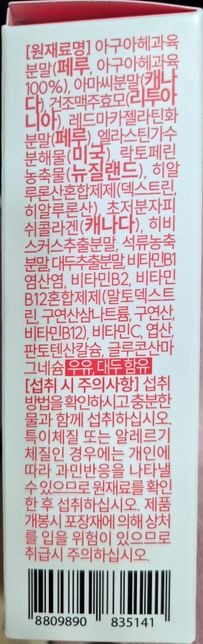 [원재료명] 아구아헤과육
분말(페루, 아구아헤과육
100%), 아마씨분말(캐나
다), 건조맥주효모(리투아
니아), 레드마카젤라틴화
분말(페루), 엘라스틴가수
분해물(미국), 락토페린
농축물(뉴질랜드), 히알
루론산혼합제제(덱스트린,
히알루론산), 초저분자피
쉬콜라겐(캐나다), 히비
스커스추출분말, 석류농축
분말, 대두추출분말, 비타민B1
염산염, 비타민B2, 비타민
B12혼합제제(말토덱스트
린, 구연산삼나트륨, 구연산,
비타민B12), 비타민C, 엽산,
판토텐산칼슘, 글루콘산마
그네슘 우유, 대두 함유
[섭취 시 주의사항] 섭취
방법을 확인하시고 충분한
물과 함께 섭취하십시오.
특이체질 또는 알레르기
체질인 경우에는 개인에
따라 과민반응을 나타낼
수 있으므로 원재료를 확인
한 후 섭취하십시오. 제품
개봉시 포장재에 의해 상처
를 입을 위험이 있으므로
취급시 주의하십시오.
8809890 835141